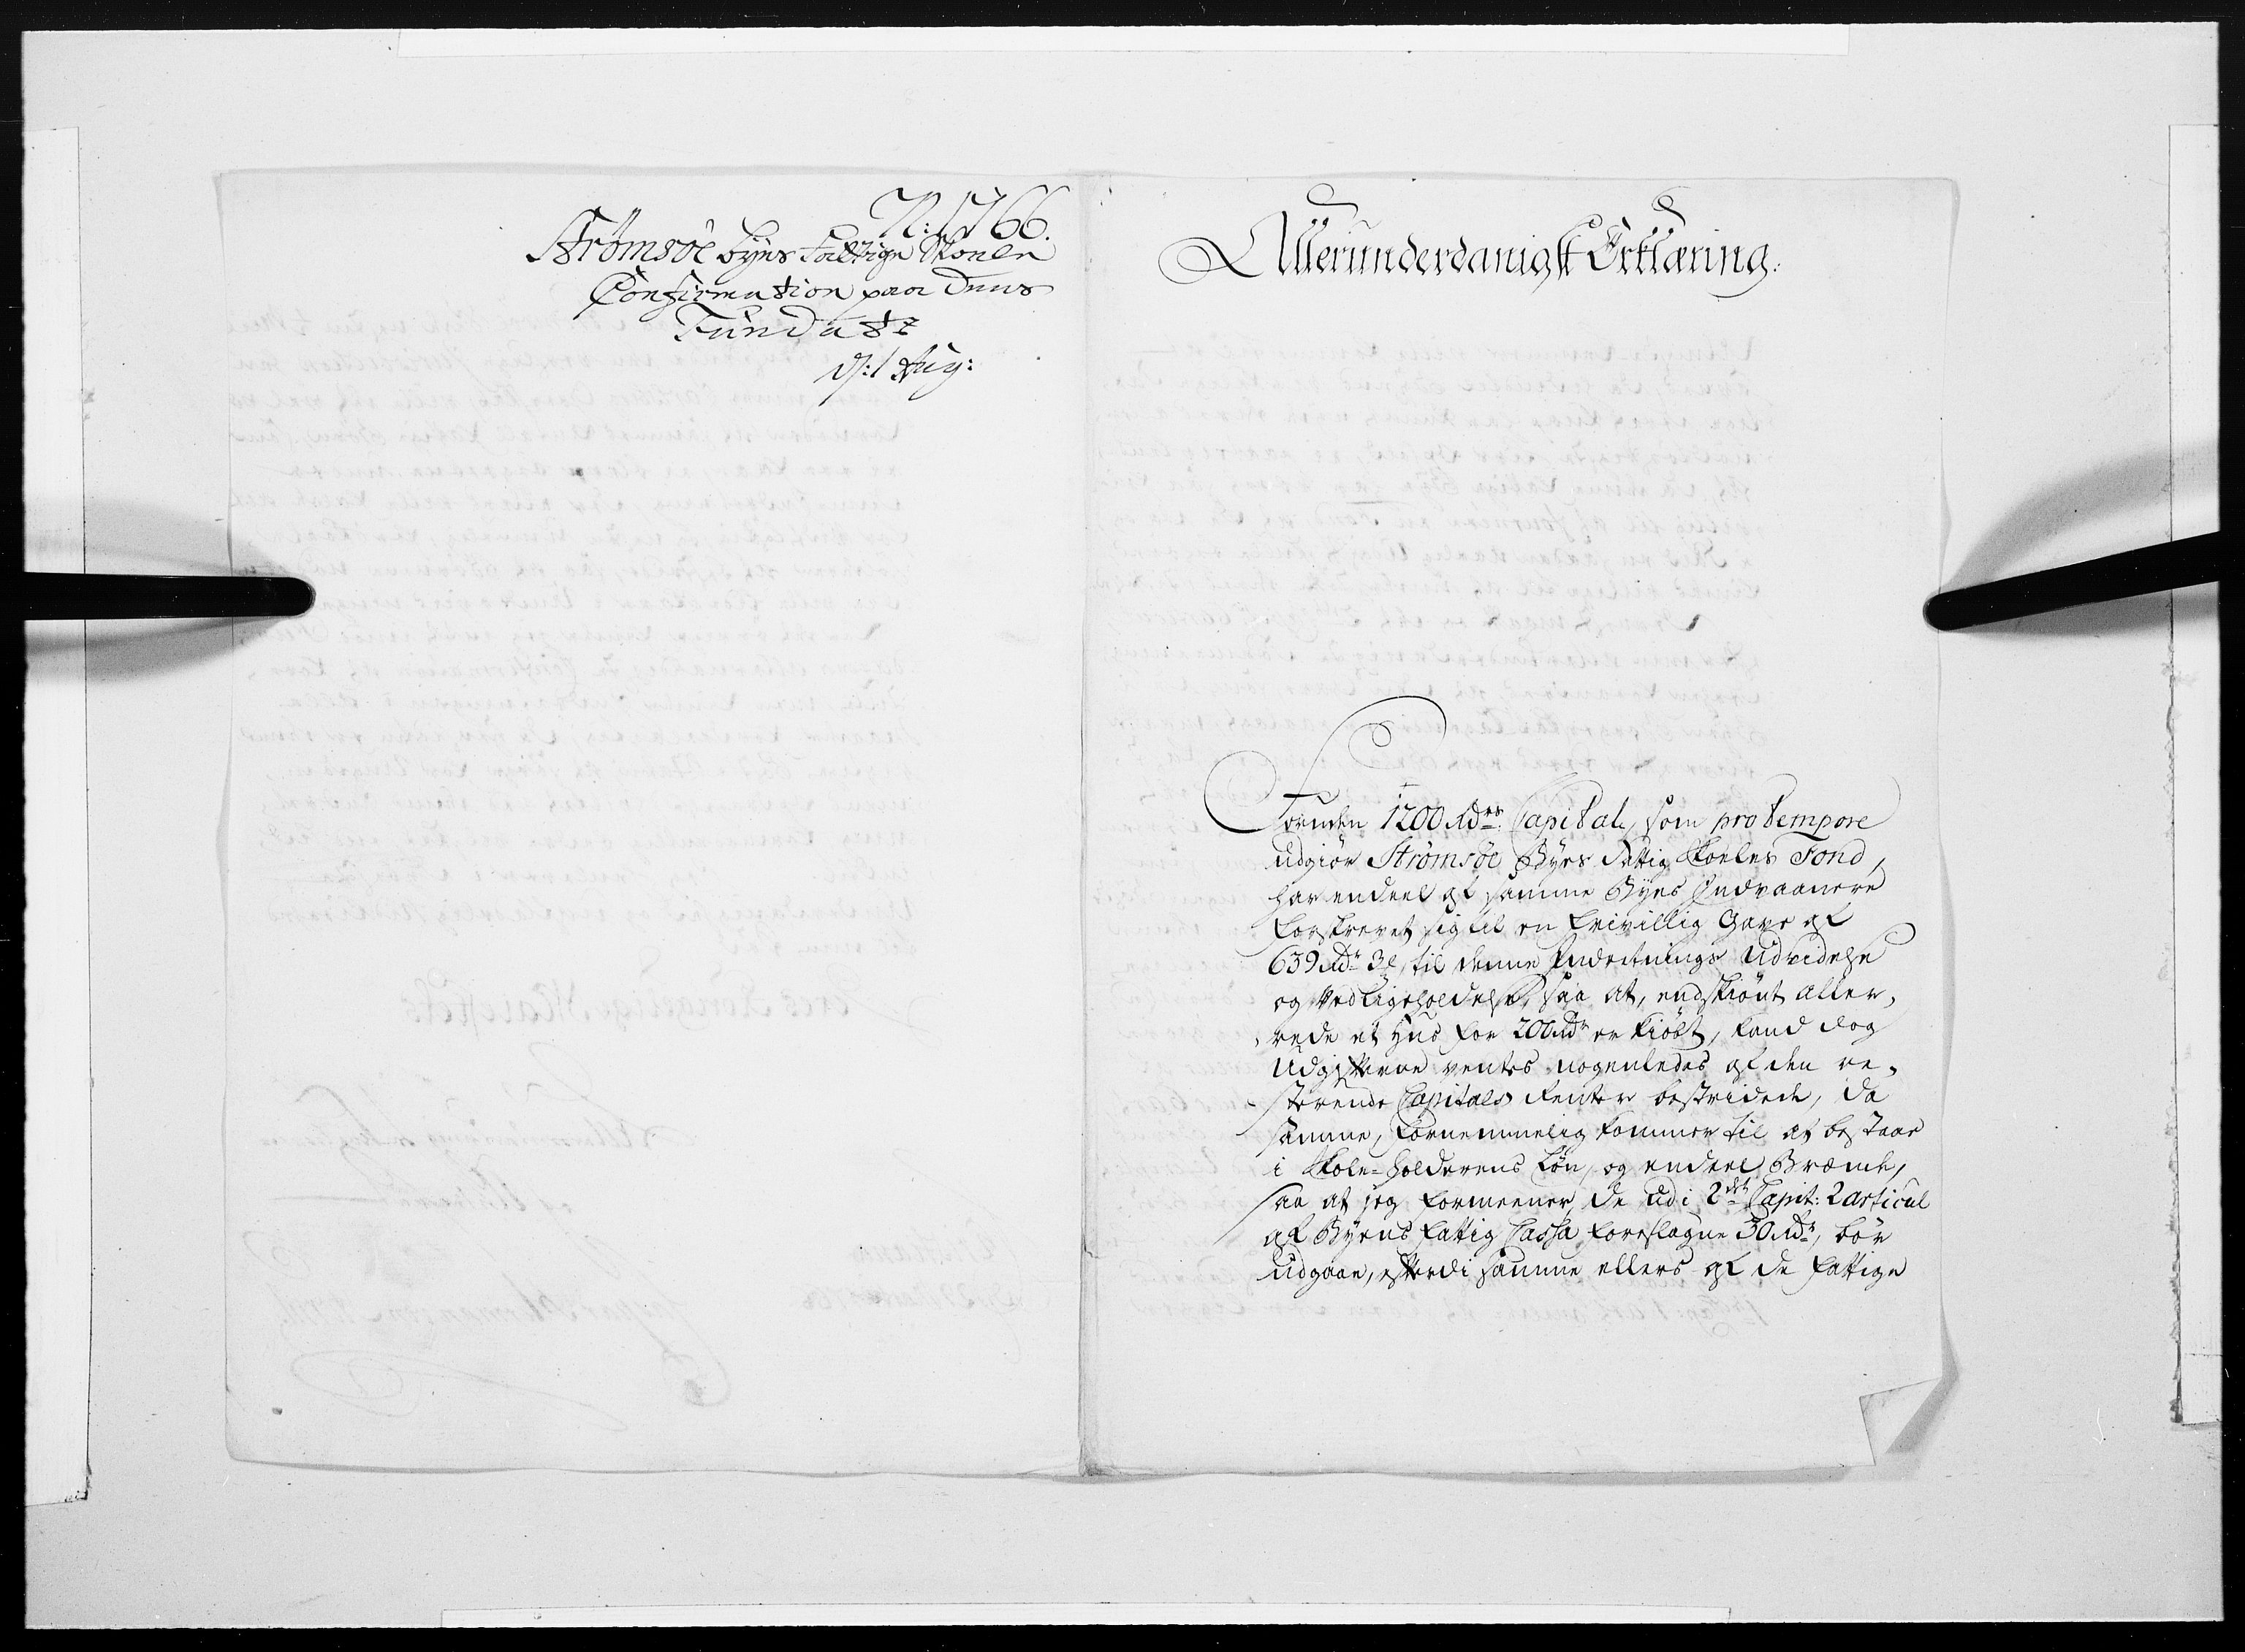 N: 1766.
Strømsøe byes Fattige Skoele
Confirmation paa dens
Fundatz
d: 1 Aug:
Allerunderdanigst Erklæring.
Foruden 1200 Rdrs Capital, som pro tempore
udgiør Strømsøe Byes Fattig Skoeles Fond,
har endeel af samme Byes Indvaanere
forskrevet sig til en frivillig Gave af
639 Rdr 3 til denne Indretnings Udvidelse
og Vedligeholdelse, saa at, endskiønt aller,
rede et Huus for 200 Rdr er kiøbt, kand dog
Udgifterne ventes nogenledes af den re,
sterende Capitals Renter bestridede, da
samme, fornemmelig kommer til at bestaae
i Skole-holderens Løn, og endeel Brænde,
saa at jeg formeener, de udi 2det Capit: 2 articul
af Byens Fattig Cassa foreslagne 30 Rdr, bør
udgaae, efterdi samme ellers af de fattige